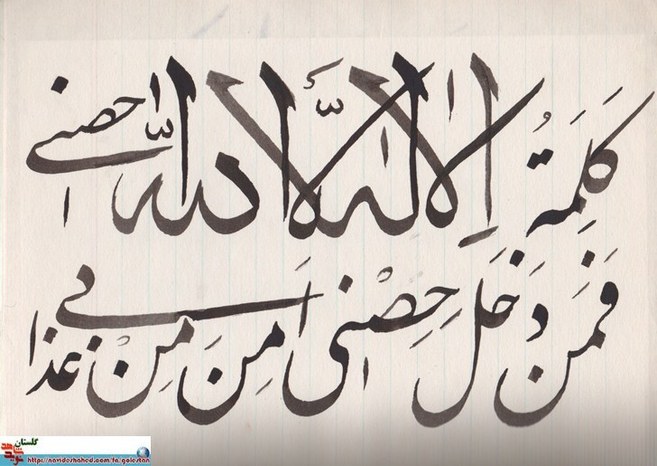 كَلِمَةُ لا اِلهَ اِلَّا اللّه حصنی
فَمَن دَخَلَ حِصْنی اَمِنَ مِنْ عذابی
گلستان
http://navideshahed.com/fa/golestan